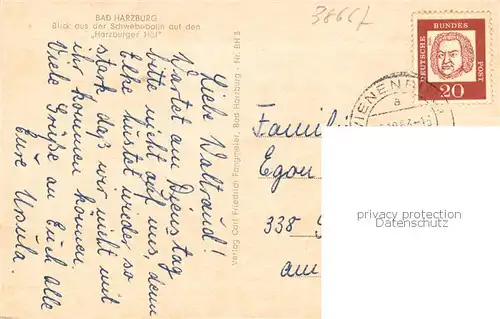 BAD HARZBURG
Blick aus der Schwebebahn auf den
„Harzburger Hof"
3866f
Liebe Waltraud!
Wartet am Dienstag
bitte nicht auf uns, denn
Elke hustet wieder, so
stark, daß wir nicht mit
ihr kommen können.
Viele Grüße an Euch alle
Eure Ursula.
Verlag Carl Friedrich Fangmeier, Bad Harzburg - Nr. BH 8
DEUTSCHE
BUNDES
POST
20
VIENENBURG
a
Famili
Egon
338
am
privacy protection
Datenschutz
protection des données